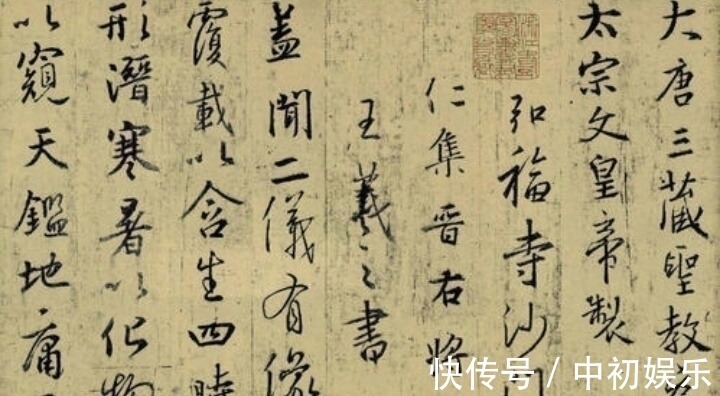 大唐三藏聖教序
太宗文皇帝製
弘福寺沙門
仁集晋右将
王羲之書
盖聞二儀有像
覆載以含生四時
形潛寒暑以化物
以窺天鑑地庸
快传号 / 中初娱乐